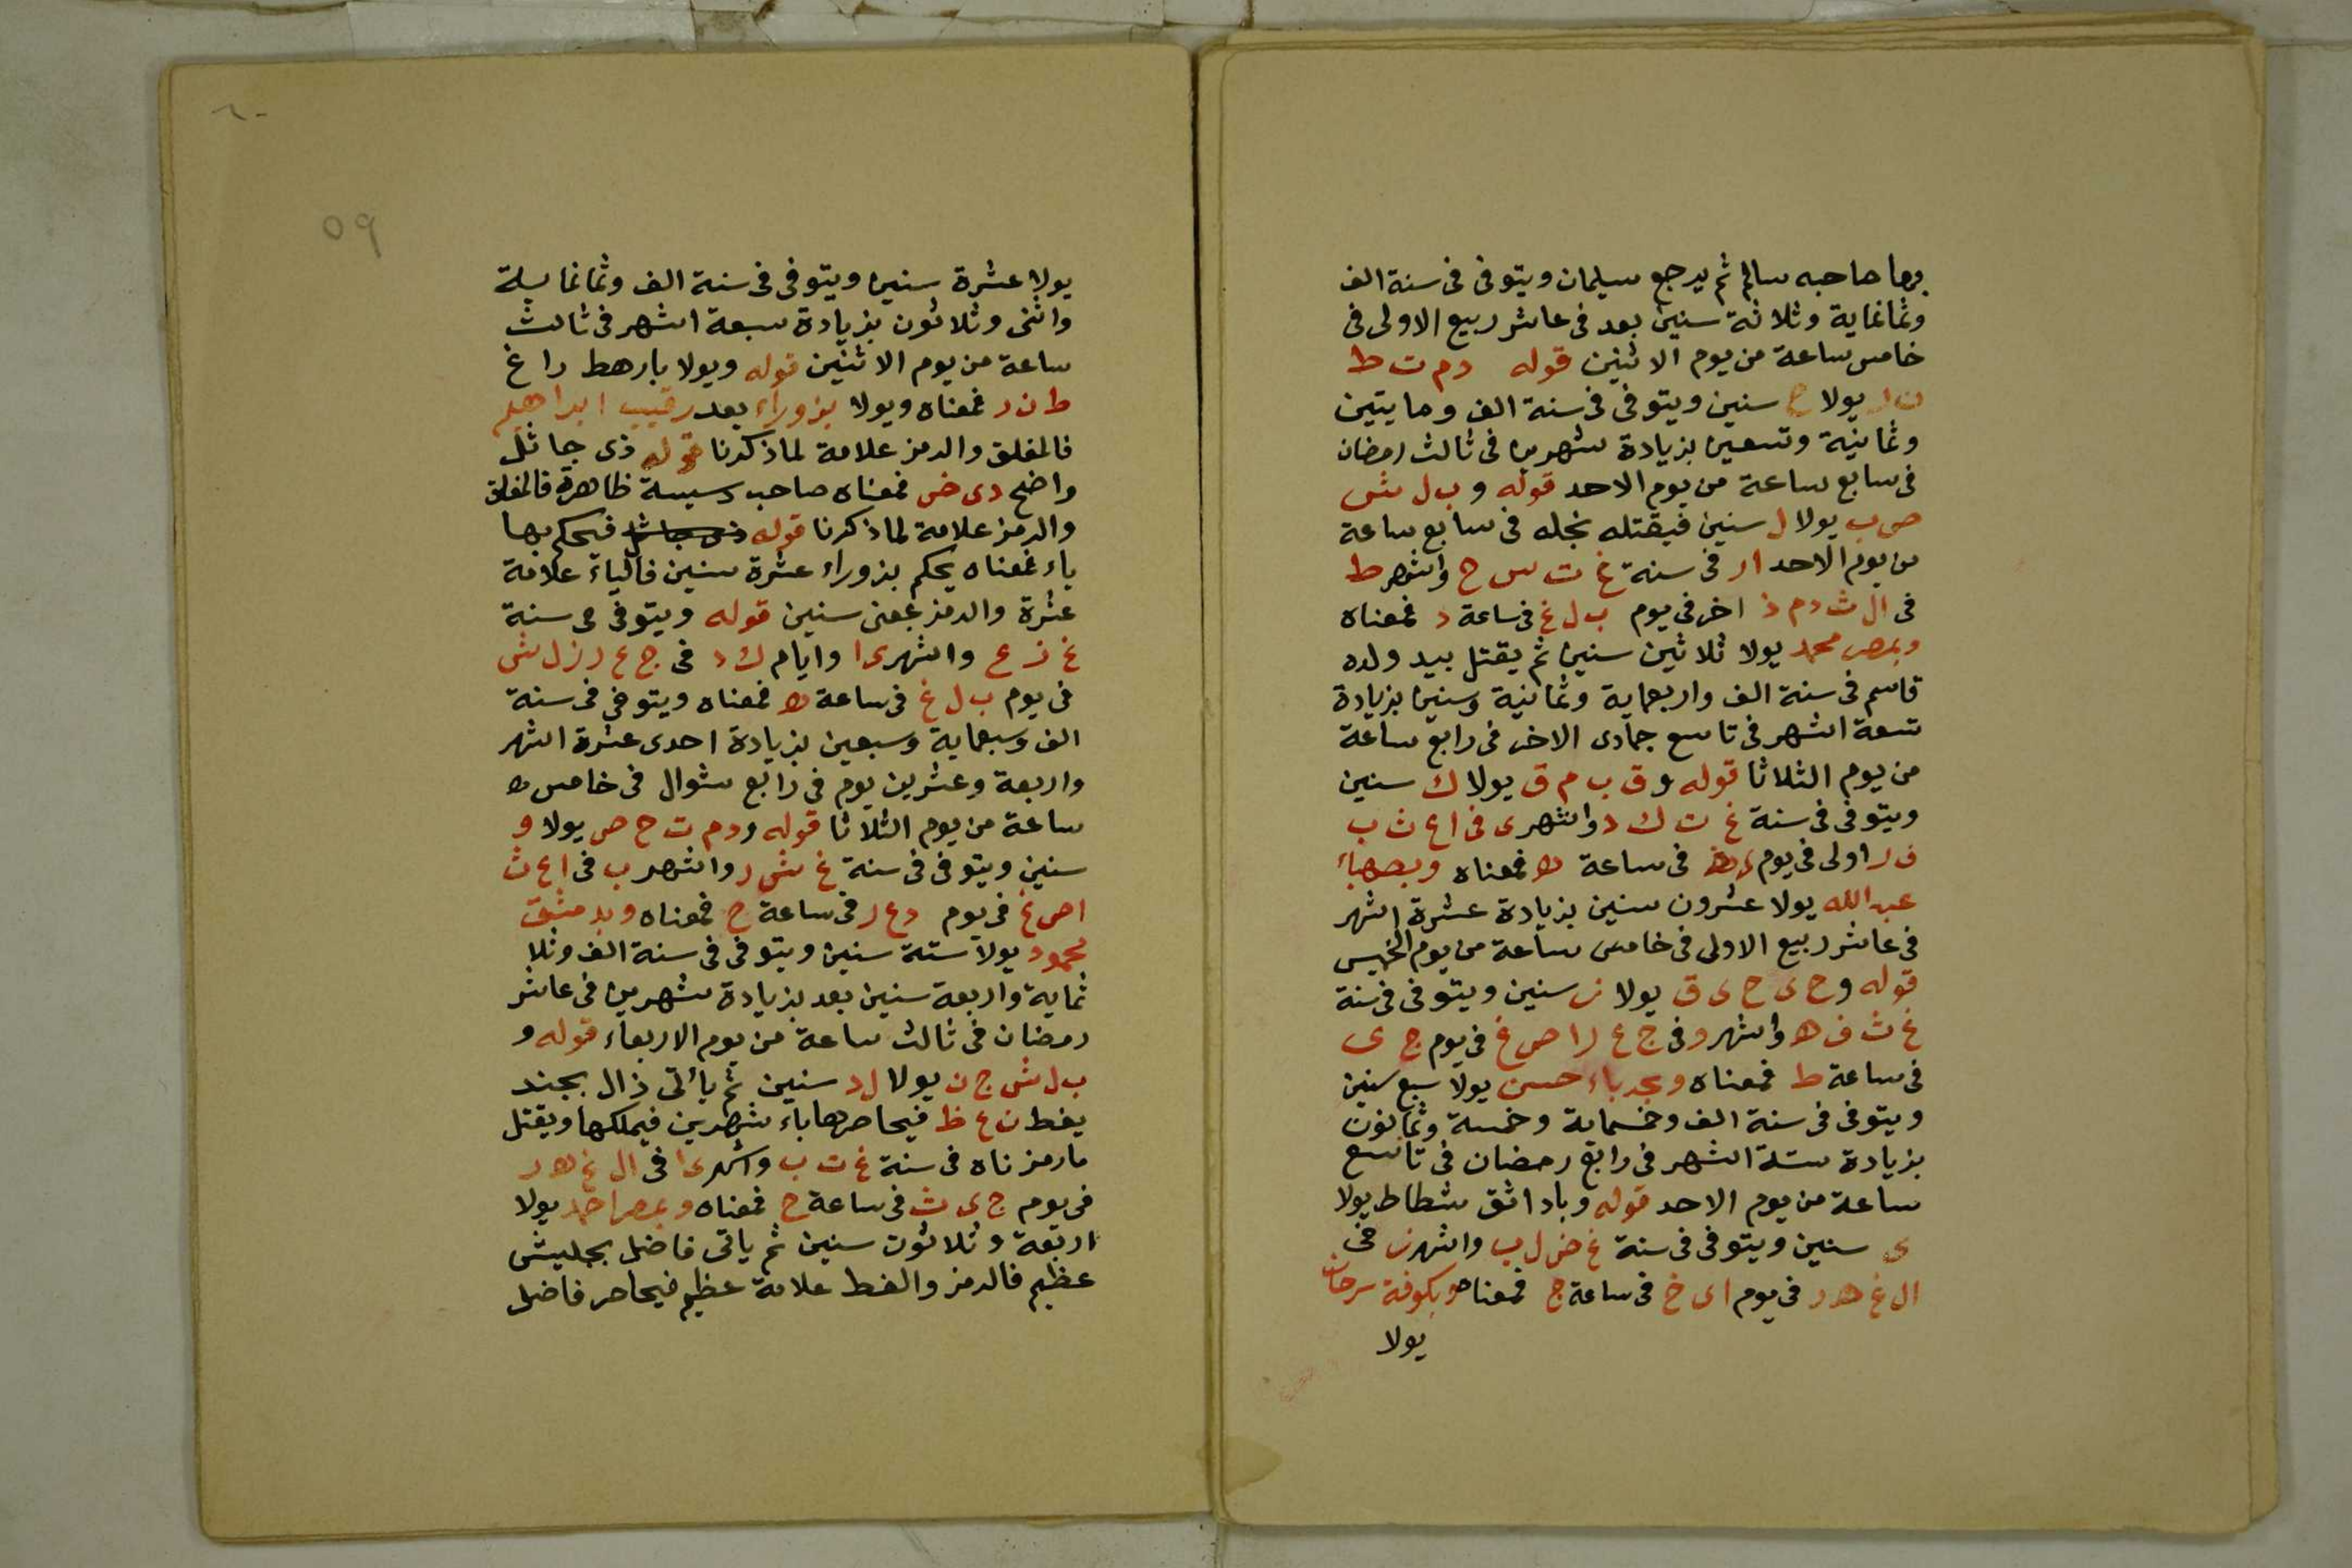 بها صاحبه سالم ثم يرجع سليمان ويتوفى فى سنة الف
وثمانماية وثلاثة سنين بعد فى عاشر ربيع الاولى فى
خامس ساعة من يوم الاثنين قوله دم ت ط
يولا ح سنين ويتوفى فى سنة الف ومايتين
وثمانية وتسعين بزيادة شهرين فى ثالث رمضان
فى سابع ساعة من يوم الاحد قوله و ب ل ش
ص ب يولا ل سنين فيقتله نجله فى سابع ساعة
من يوم الاحد ار فى سنة غ ت س ح واشهر ط
فى ال ث دم ذ اخر فى يوم ب ل غ فى ساعة د فمعناه
وبمصر محمد يولا ثلاثين سنين ثم يقتل بيد ولده
قاسم فى سنة الف واربعماية وثمانية وسنين بزيادة
تسعة اشهر فى تاسع جمادى الاخر فى رابع ساعة
من يوم الثلاثا قوله و ق ب م ق يولا ك سنين
ويتوفى فى سنة غ ت ك د واشهر ى فى ا ع ث ب
ف ر اولى فى يوم فى ساعة ه فمعناه وبصهباء
عبد الله يولا عشرون سنين بزيادة عشرة اشهر
فى عاشر ربيع الاولى فى خامس ساعة من يوم الخميس
قوله و ح ى ح ى ق يولا ز سنين ويتوفى فى سنة
غ ث ف ه واشهر و فى ج ع ر ا ص غ فى يوم ج ى
فى ساعة ط فمعناه وبجدباء حسن يولا سبع سنين
ويتوفى فى سنة الف وخمسماية وخمسة وثمانون
بزيادة ستة اشهر فى رابع رمضان فى تاسع
ساعة من يوم الاحد قوله وباداثق شطاط يولا
ى سنين ويتوفى فى سنة غ ض ل ب واشهر ز فى
ال غ ه د ر فى يوم ا ى خ فى ساعة ج فمعناه وبكوفة سرحان
يولا
٦٠
٥٩
يولا عشرة سنين ويتوفى فى سنة الف وثمانماية
واثنى وثلاثون بزيادة سبعة اشهر فى ثالث
ساعة من يوم الاثنين قوله ويولا بارهط راغ
ط ن ر فمعناه ويولا بزوراء بعد رقيب ابراهيم
فالمغلق والرمز علامة لما ذكرنا قوله ذى جاثل
واضح دى خى فمعناه صاحب دسيسة ظاهرة فالمغلق
والرمز علامة لما ذكرنا قوله فيحكم بها
ياء فمعناه يحكم بزوراء عشرة سنين فالياء علامة
عشرة والرمز بمعنى سنين قوله ويتوفى فى سنة
غ ز ع واشهر ى ا وايام ك د فى ج ع ر ز ل ش
فى يوم ب ل غ فى ساعة ه فمعناه ويتوفى فى سنة
الف وسبعماية وسبعين بزيادة احدى عشرة اشهر
واربعة وعشرين يوم فى رابع شوال فى خامس ه
ساعة من يوم الثلاثا قوله ودم ت ح ص يولا و
سنين ويتوفى فى سنة غ ش ر واشهر ب فى ا ع ث
ا ص غ فى يوم د ع ر فى ساعة ج فمعناه وبدمشق
محمود يولا ستة سنين ويتوفى فى سنة الف وثلا
ثماية واربعة سنين بعد بزيادة شهرين فى عاشر
رمضان فى ثالث ساعة من يوم الاربعاء قوله و
ب ل ش ج ن يولا ل د سنين ثم يأتى ذال بجند
يغط ن ع ظ فيحاصرها باء شهرين فيملكها ويقتل
مارمزناه فى سنة غ ت ب واشهر ى ا فى ال غ ه د ر
فى يوم ج ى ث فى ساعة ح فمعناه وبمصر احمد يولا
اربعة وثلاثون سنين ثم ياتى فاضل بجليش
عظيم فالرمز والغط علامة عظيم فيحاصر فاضل